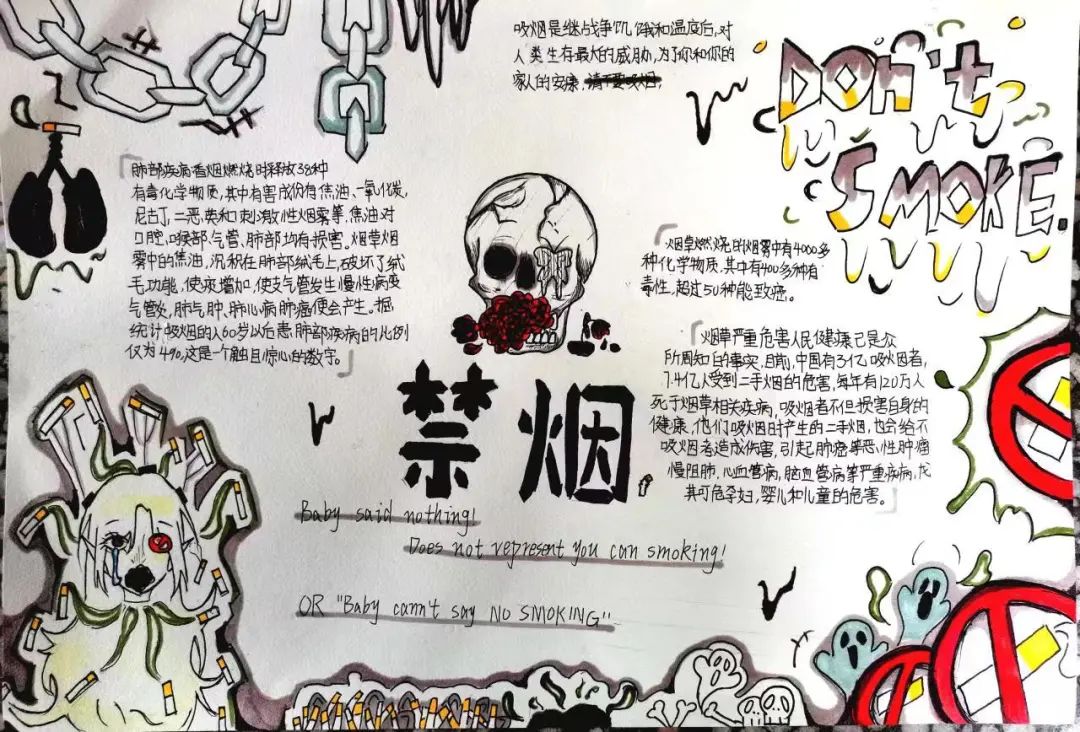 吸烟是继战争饥饿和温度后,对
人类生存最大的威胁,为了你和你的
家人的安康,请不要吸烟,
DON't
SMOKE.
肺部疾病香烟燃烧时释放38种
有毒化学物质,其中有害成份有焦油、一氧化炭,
尼古丁,二恶,类和刺激性烟雾等,焦油对
口腔,喉部,气管,肺部均有损害。烟草烟
雾中的焦油,沉积在肺部绒毛上,破坏了绒
毛功能,使痰增加,使支气管发生慢性病变
气管炎,肺气肿、肺心病肺癌便会产生。据
统计吸烟的人60岁以后患肺部疾病的比例
仅为490,这是一个触目惊心的数字。
烟草燃烧的烟雾中有4000多
种化学物质,其中有400多种有
毒性,超过50种能致癌。
烟草严重危害人民健康已是众
所周知的事实,目前,中国有3亿吸烟者,
7.4亿人受到二手烟的危害,每年有120万人
死于烟草相关疾病,吸烟者不但损害自身的
健康,他们吸烟时产生的二手烟,也会给不
吸烟者造成伤害,引起肺癌等恶性肿瘤
慢阻肺,心血管病,脑血管病等严重疾病,尤
其可危孕妇,婴儿和儿童的危害。
禁烟
Baby said nothing!
Does not represent you can smoking!
OR "Baby cann't say NO SMOKING"